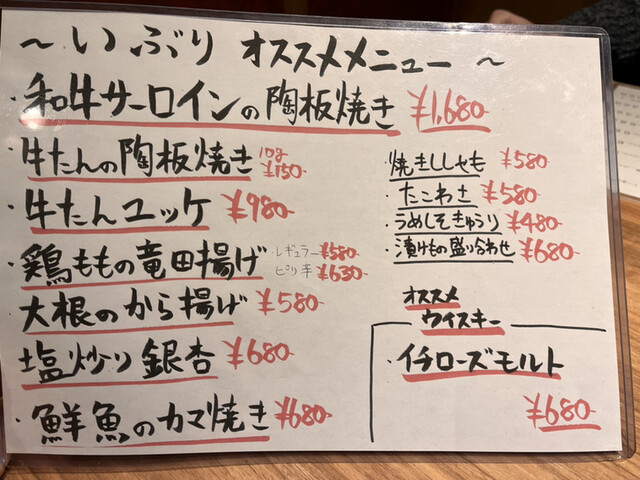 ～いぶり オススメメニュー～
・和牛サーロインの陶板焼き ¥1,680-
・牛たんの陶板焼き 10g ¥150-
・牛たんユッケ ¥980-
・鶏ももの竜田揚げ レギュラー ¥580-
ピリ辛 ¥630-
・大根のから揚げ ¥580-
・塩炒り銀杏 ¥680-
・鮮魚のカマ焼き ¥680-
・焼きししゃも ¥580-
・たこわさ ¥580-
・うめしそきゅうり ¥480-
・漬けもの盛り合わせ ¥680-
オススメ
ウイスキー
・イチローズモルト
¥680-